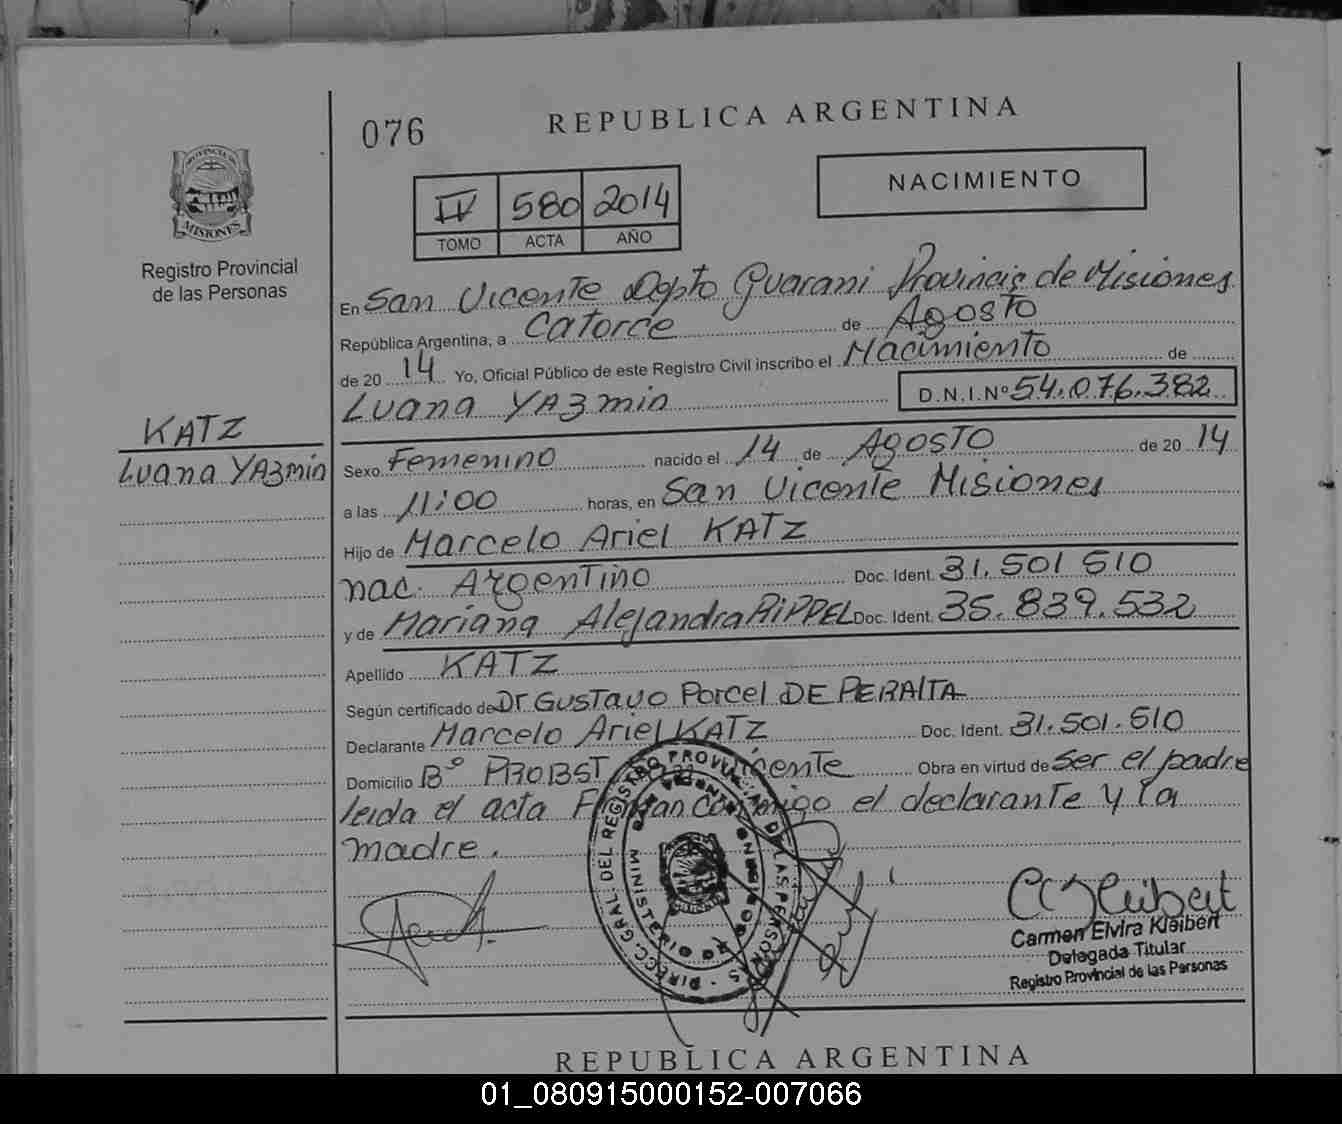 076
REPUBLICA ARGENTINA
PROVINCIA DE
MISIONES
Registro Provincial
de las Personas
IV 580 2014
TOMO ACTA AÑO
NACIMIENTO
En San Vicente Depto Guarani Provincia de Misiones
República Argentina, a Catorce de Agosto
de 20 14 Yo, Oficial Público de este Registro Civil inscribo el Nacimiento de
Luana YAzmin D.N.I.Nº 54.076.382
KATZ
Luana YAzmin
Sexo Femenino nacido el 14 de Agosto de 20 14
a las 11:00 horas, en San Vicente Misiones
Hijo de Marcelo Ariel KATZ
nac. Argentino Doc. Ident. 31.501 510
y de Mariana Alejandra RIPPEL Doc. Ident. 35.839.532
Apellido KATZ
Según certificado de Dr Gustavo Porcel DE PERALTA
Declarante Marcelo Ariel KATZ Doc. Ident. 31.501.510
Domicilio Bº PROBST Vicente Obra en virtud de Ser el padre
leida el acta Firman Conmigo el declarante y la
madre.
DIRECC. GRAL. DEL REGISTRO PROVINCIAL DE LAS PERSONAS
MINISTERIO DE GOBIERNO
SAN VICENTE
Carmen Elvira Kleibert
Delegada Titular
Registro Provincial de las Personas
REPUBLICA ARGENTINA
01_080915000152-007066